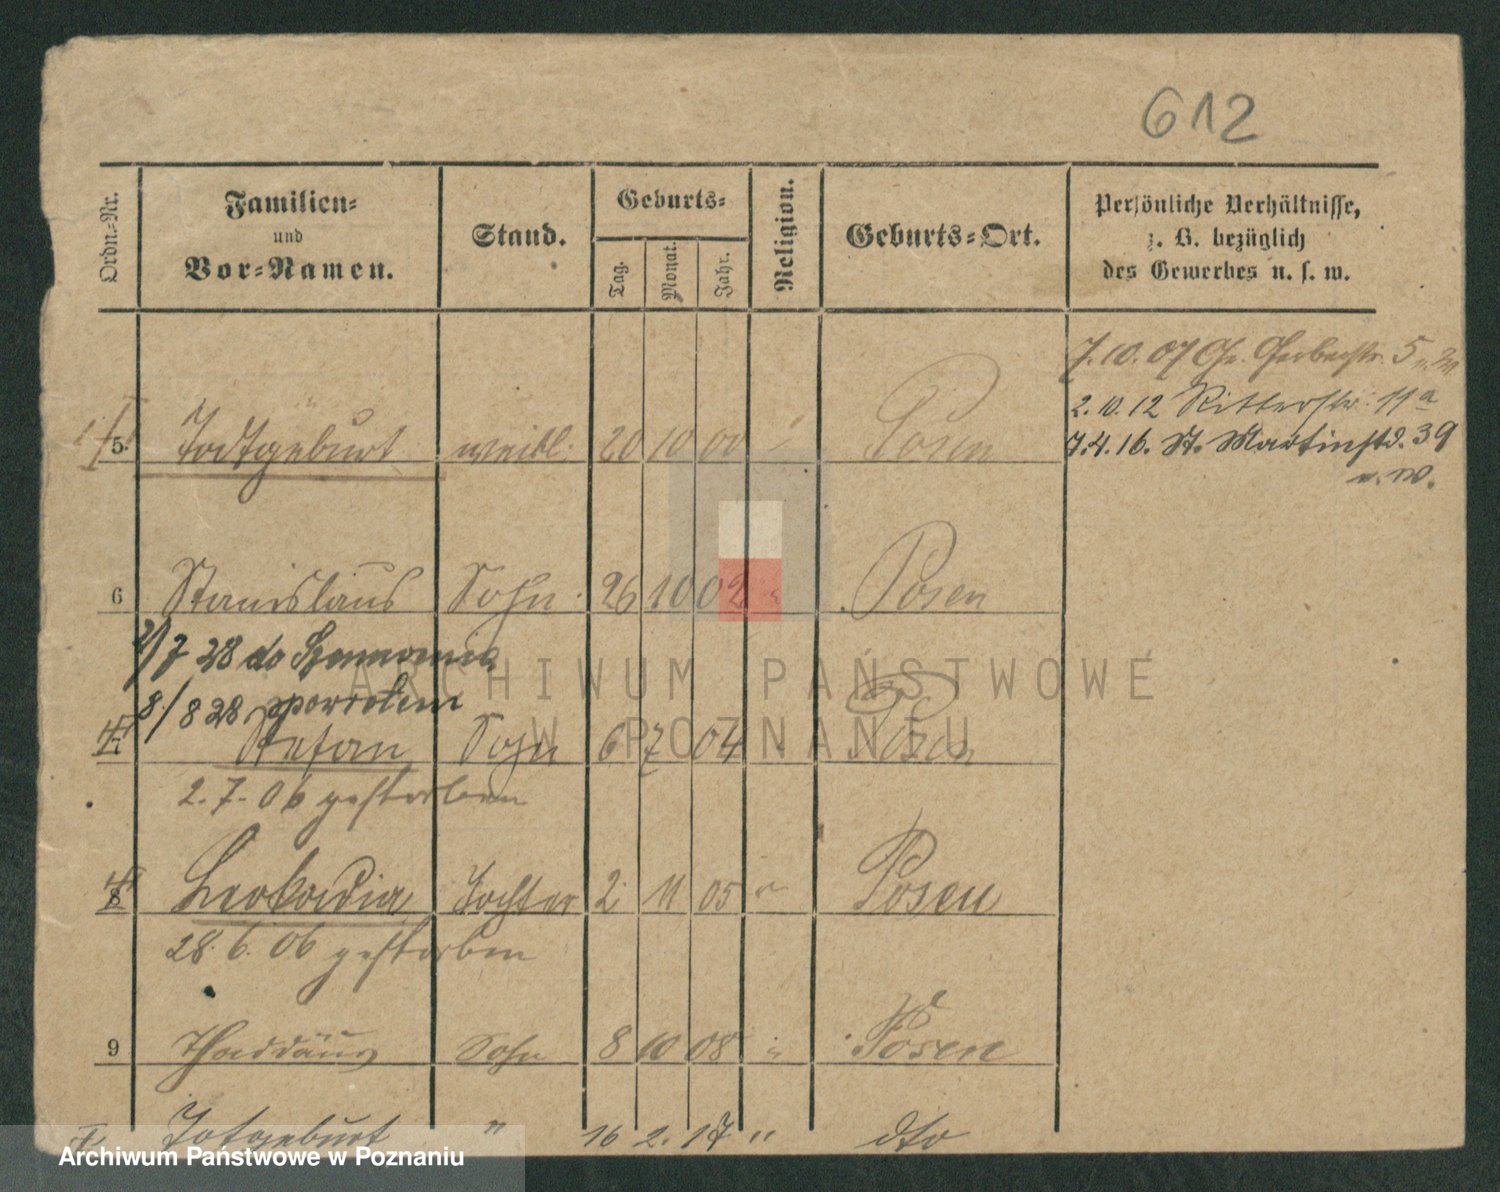 612
Ordn.=Nr. Familien= und Vor=Namen. Stand. Geburts= Tag. Monat. Jahr. Religion. Geburts=Ort. Persönliche Verhältnisse, z. B. bezüglich des Gewerbes u. s. w.
7.10.07 Gr. Gerberstr. 5
2.10.12 Ritterstr. 11a
7.4.16. St. Martinstr. 39
u. W.
5. Todtgeburt weibl. 20 10 00 " Posen
6 Stanislaus Sohn 26 10 02 " Posen
2/7 28 do
8/8 28 spowrotem
7 Stefan Sohn 6 7 04 " Posen
2.7.06 gestorben
8 Leokadia Tochter 2 11 05 " Posen
28.6.06 gestorben
9 Thaddäus Sohn 8 10 08 " Posen
Totgeburt " 16 2. 17 " dto
ARCHIWUM PAŃSTWOWE
W POZNANIU
Archiwum Państwowe w Poznaniu